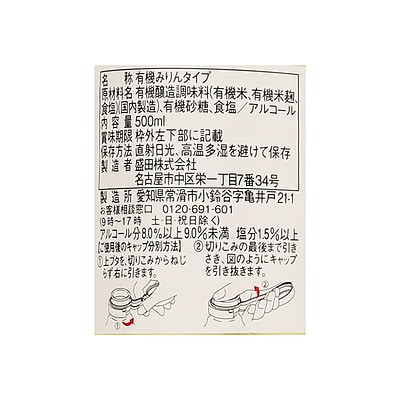 名　　称 有機みりんタイプ
原材料名 有機醸造調味料(有機米、有機米麹、
食塩)(国内製造)、有機砂糖、食塩／アルコール
内 容 量 500ml
賞味期限 枠外左下部に記載
保存方法 直射日光、高温多湿を避けて保存
製 造 者 盛田株式会社
名古屋市中区栄一丁目7番34号
製 造 所 愛知県常滑市小鈴谷字亀井戸21-1
お客様相談窓口 0120-691-601
(9時〜17時 土・日・祝日除く)
アルコール分8.0%以上9.0%未満 塩分1.5%以上
〔ご使用後のキャップ分別方法〕
①上ブタを、切りこみからねじらず右に引きます。
②切りこみの最後まで引きさき、図のようにキャップを引き抜きます。
①
②